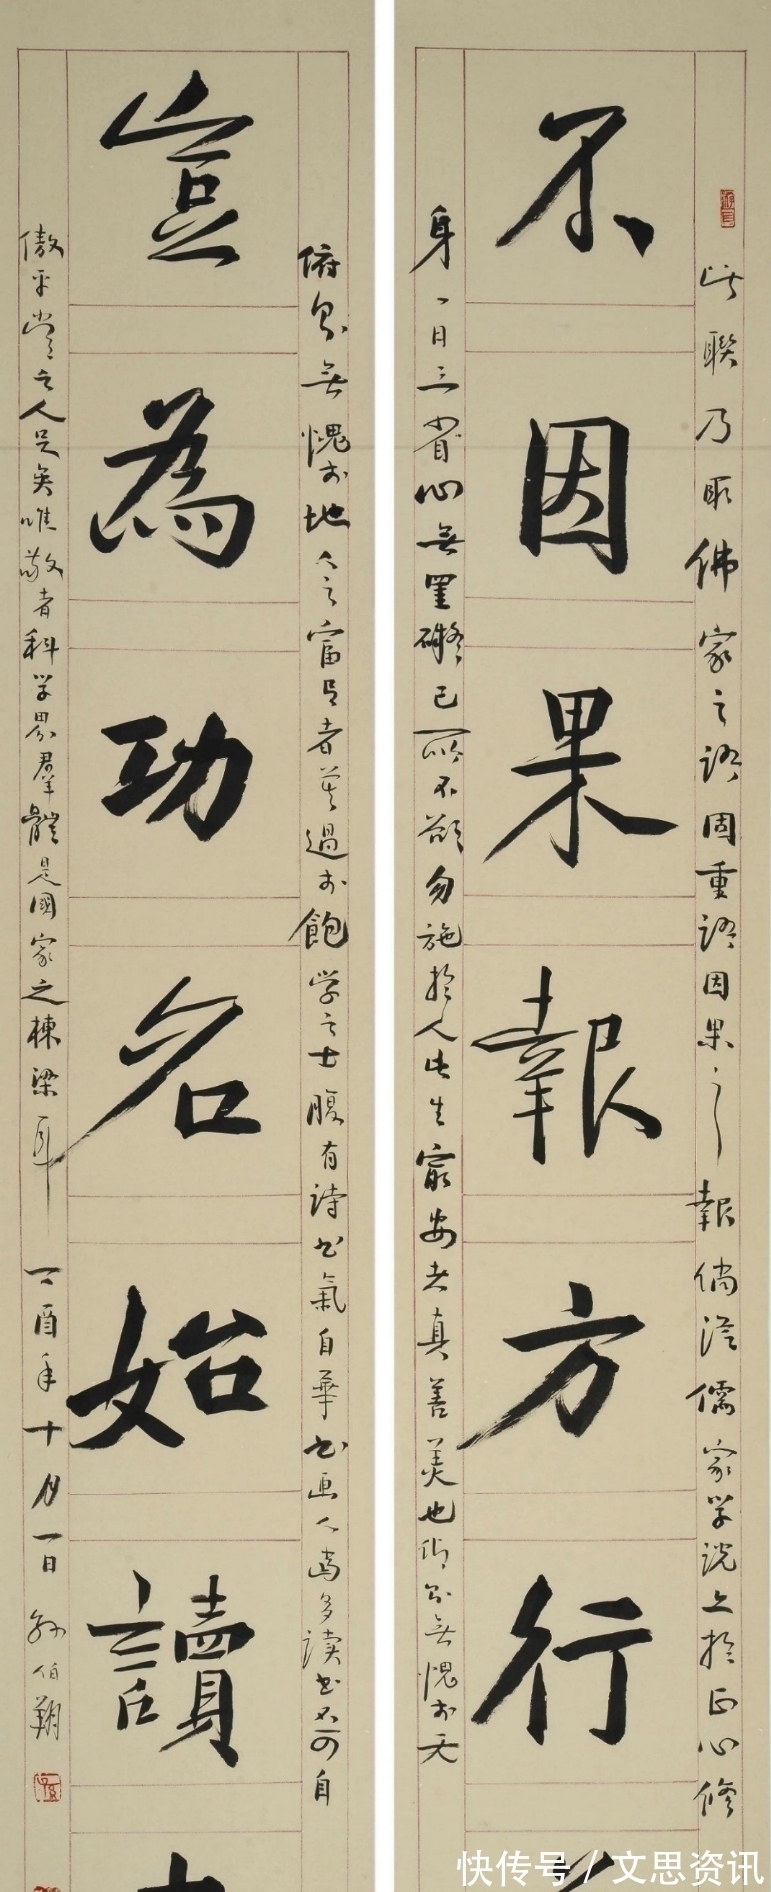 不因果報方行
此聯乃取佛家之語固重語因果之報倘從儒家学説之於正心修
身一日三省心無罣礙己所不欲勿施於人此生寧安者真善美也仰則無愧於天
豈為功名始讀
俯則無愧於地今之富貴者莫過於飽学之士腹有詩書氣自華書画人尚多讀書不可自
傲平學之人足矣唯敬者科学界羣體是國家之棟梁耳
丁酉年十月一日
孫伯翔
快传号/文思资讯